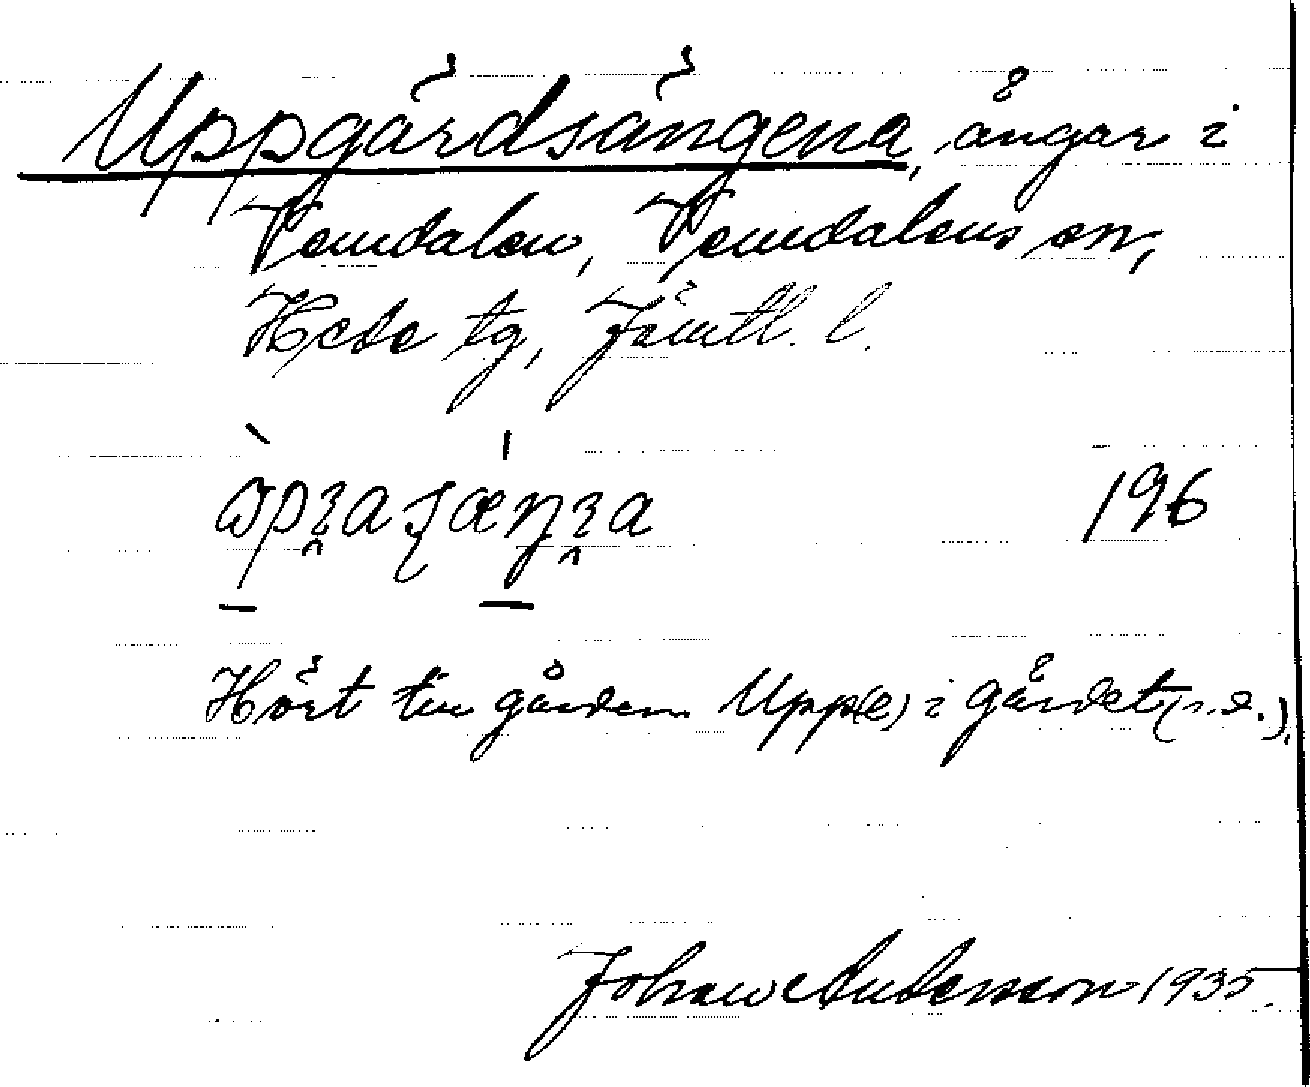 Uppgårdsängena, ängar i
Vemdalen, Vemdalens sn,
Hede tg, Jämtl. l.
196
Hört till gården Upp(e) i gårdet (s.d.).
Johan Andersson 1935.